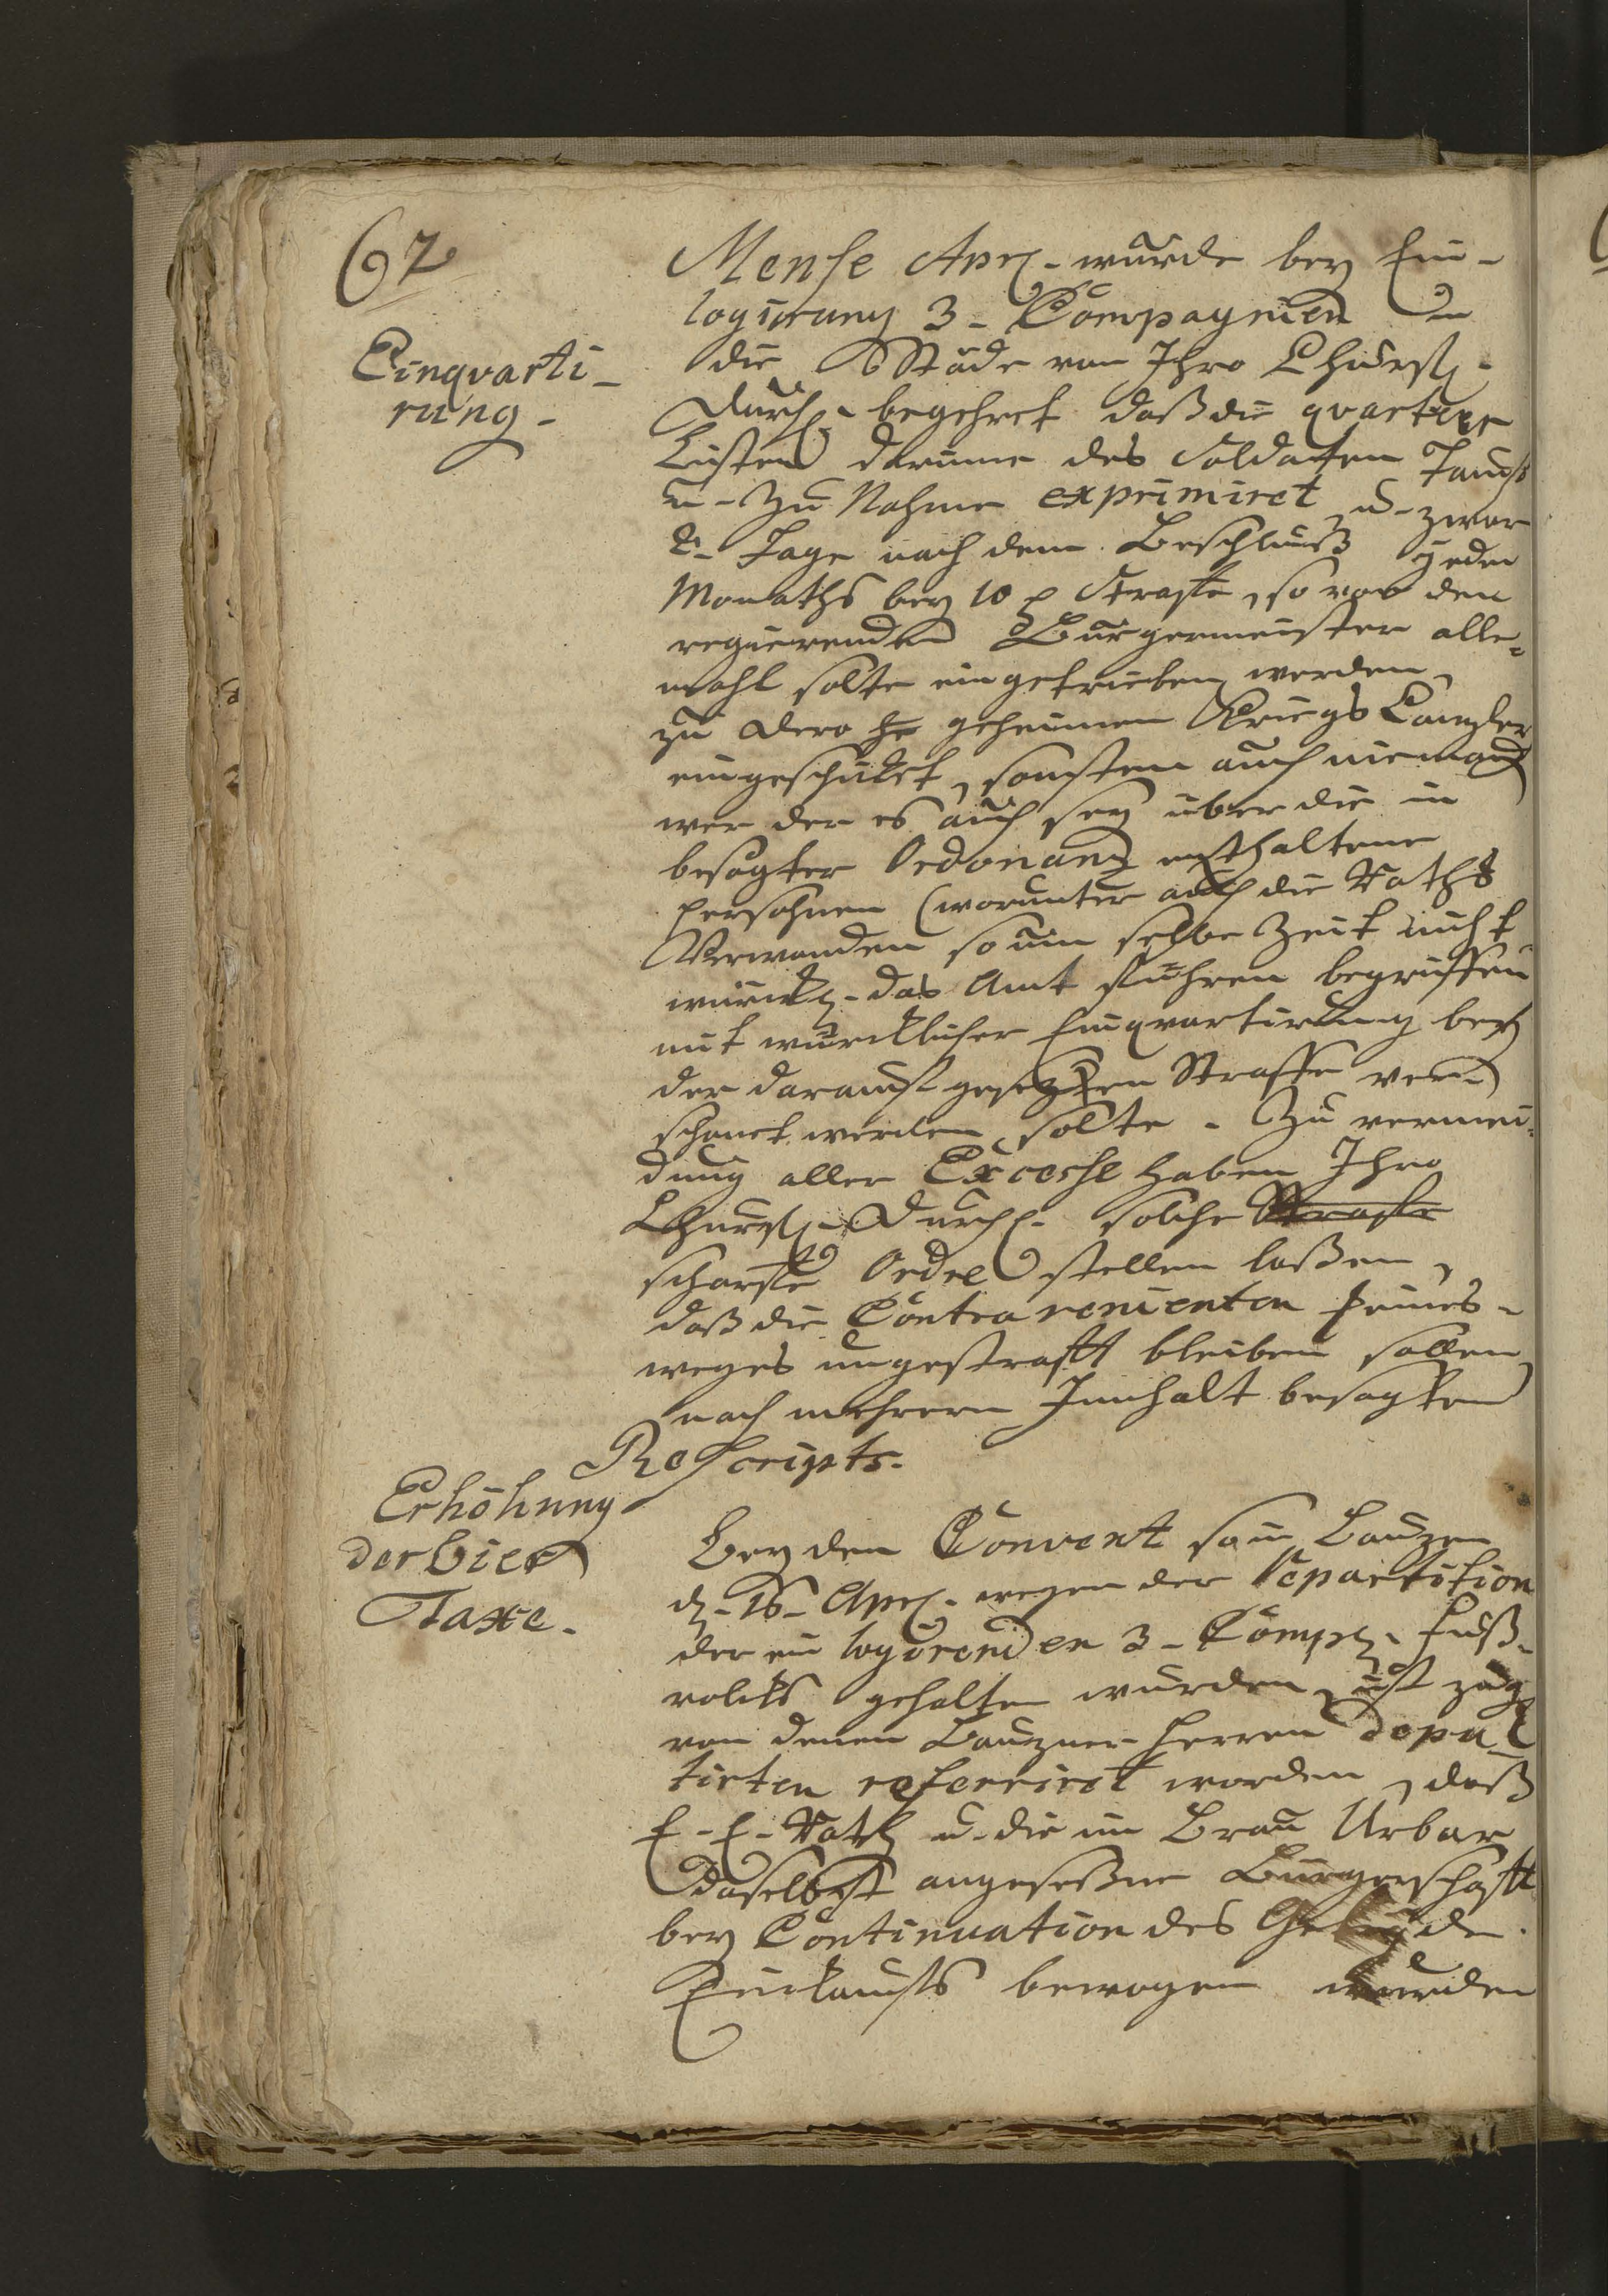 62
Einqvarti-
rung.
Mense Apr. wurde bey Ein-
logirung 3 - Compagnien in
die 6 Städe von Ihro Churf.
Durchl. begehret daß die qvartier
Listen darinne des Soldaten Tauf
u. Zu Nahme exprimiret, u. zwar
2. Tage nach dem Beschluß jeden
Monaths bey 10 Straffe, so von den
regierenden Bürgermeister alle-
mahl solte eingetrieben werden,
zu dero geheimen Kriegs Canzley
eingeschicket, sonsten auch niemand
wer der es auch sey über die in
besagter Ordonanz enthaltene
Persohnen (worunter auch die Raths
Verwanden so um selbe Zeit nicht
würckl. das Amt führen begriffen
mit würcklicher Einqvartirung bey
der darauf gesezten Straffe ver-
schonet werden solte. Zu vermei-
dung aller Excesse haben Ihro
Churfl. Durchl. solche Straffe
scharffe Ordre stellen laßen,
daß die Contravenienten keines-
weges ungestrafft bleiben sollen,
nach mehrern Innhalt besagten
Rescripts.
Erhöhung
der bier
Taxe.
Bey den Convent so in Bauzen
d. 16. Apr. wegen der Repartition
der ein logirenden 3 - Comp. Fuß-
volcks gehalten wurden, ist
von denen Bauzner Herren Depu-
tirten referriret worden, daß
E. E. Rath u. die im Brau Urbar
daselbst angeseßne Bürgerschafft
bey Continuation des Getreyde
Einkauffs bewogen wurden